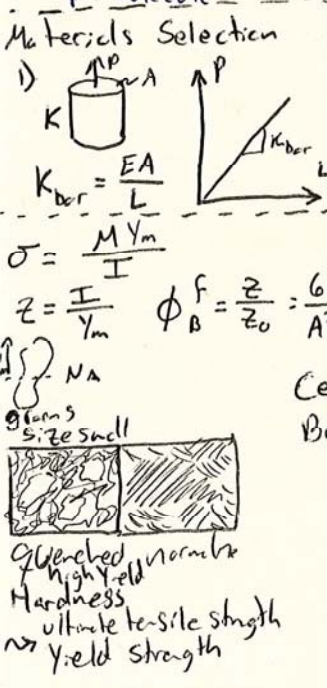 Materials Selection
1)
P
A
K
P
K_bar
L
K_bar = EA/L
σ = M Y_m / I
Z = I/Y_m
ϕ_B^f = Z/Z_0 = 6/A
NA
Ce
grains
size small
B
quenched
high yield
Hardness
ultimate tensile
Yield strength